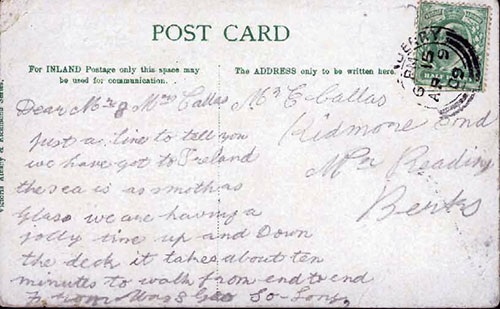 POST CARD
For INLAND Postage only this space may
be used for communication.
The ADDRESS only to be written here.
Dear Mr & Mrs Callas
Just a line to tell you
we have got to Ireland
the sea is as smoth as
Glass we are having a
jolly time up and Down
the deck it takes about ten
minutes to walk from end to end
from So-Long
Mr E Callas
Ridmore End
Nr Reading
Berks
HALF
15
AP 9
09